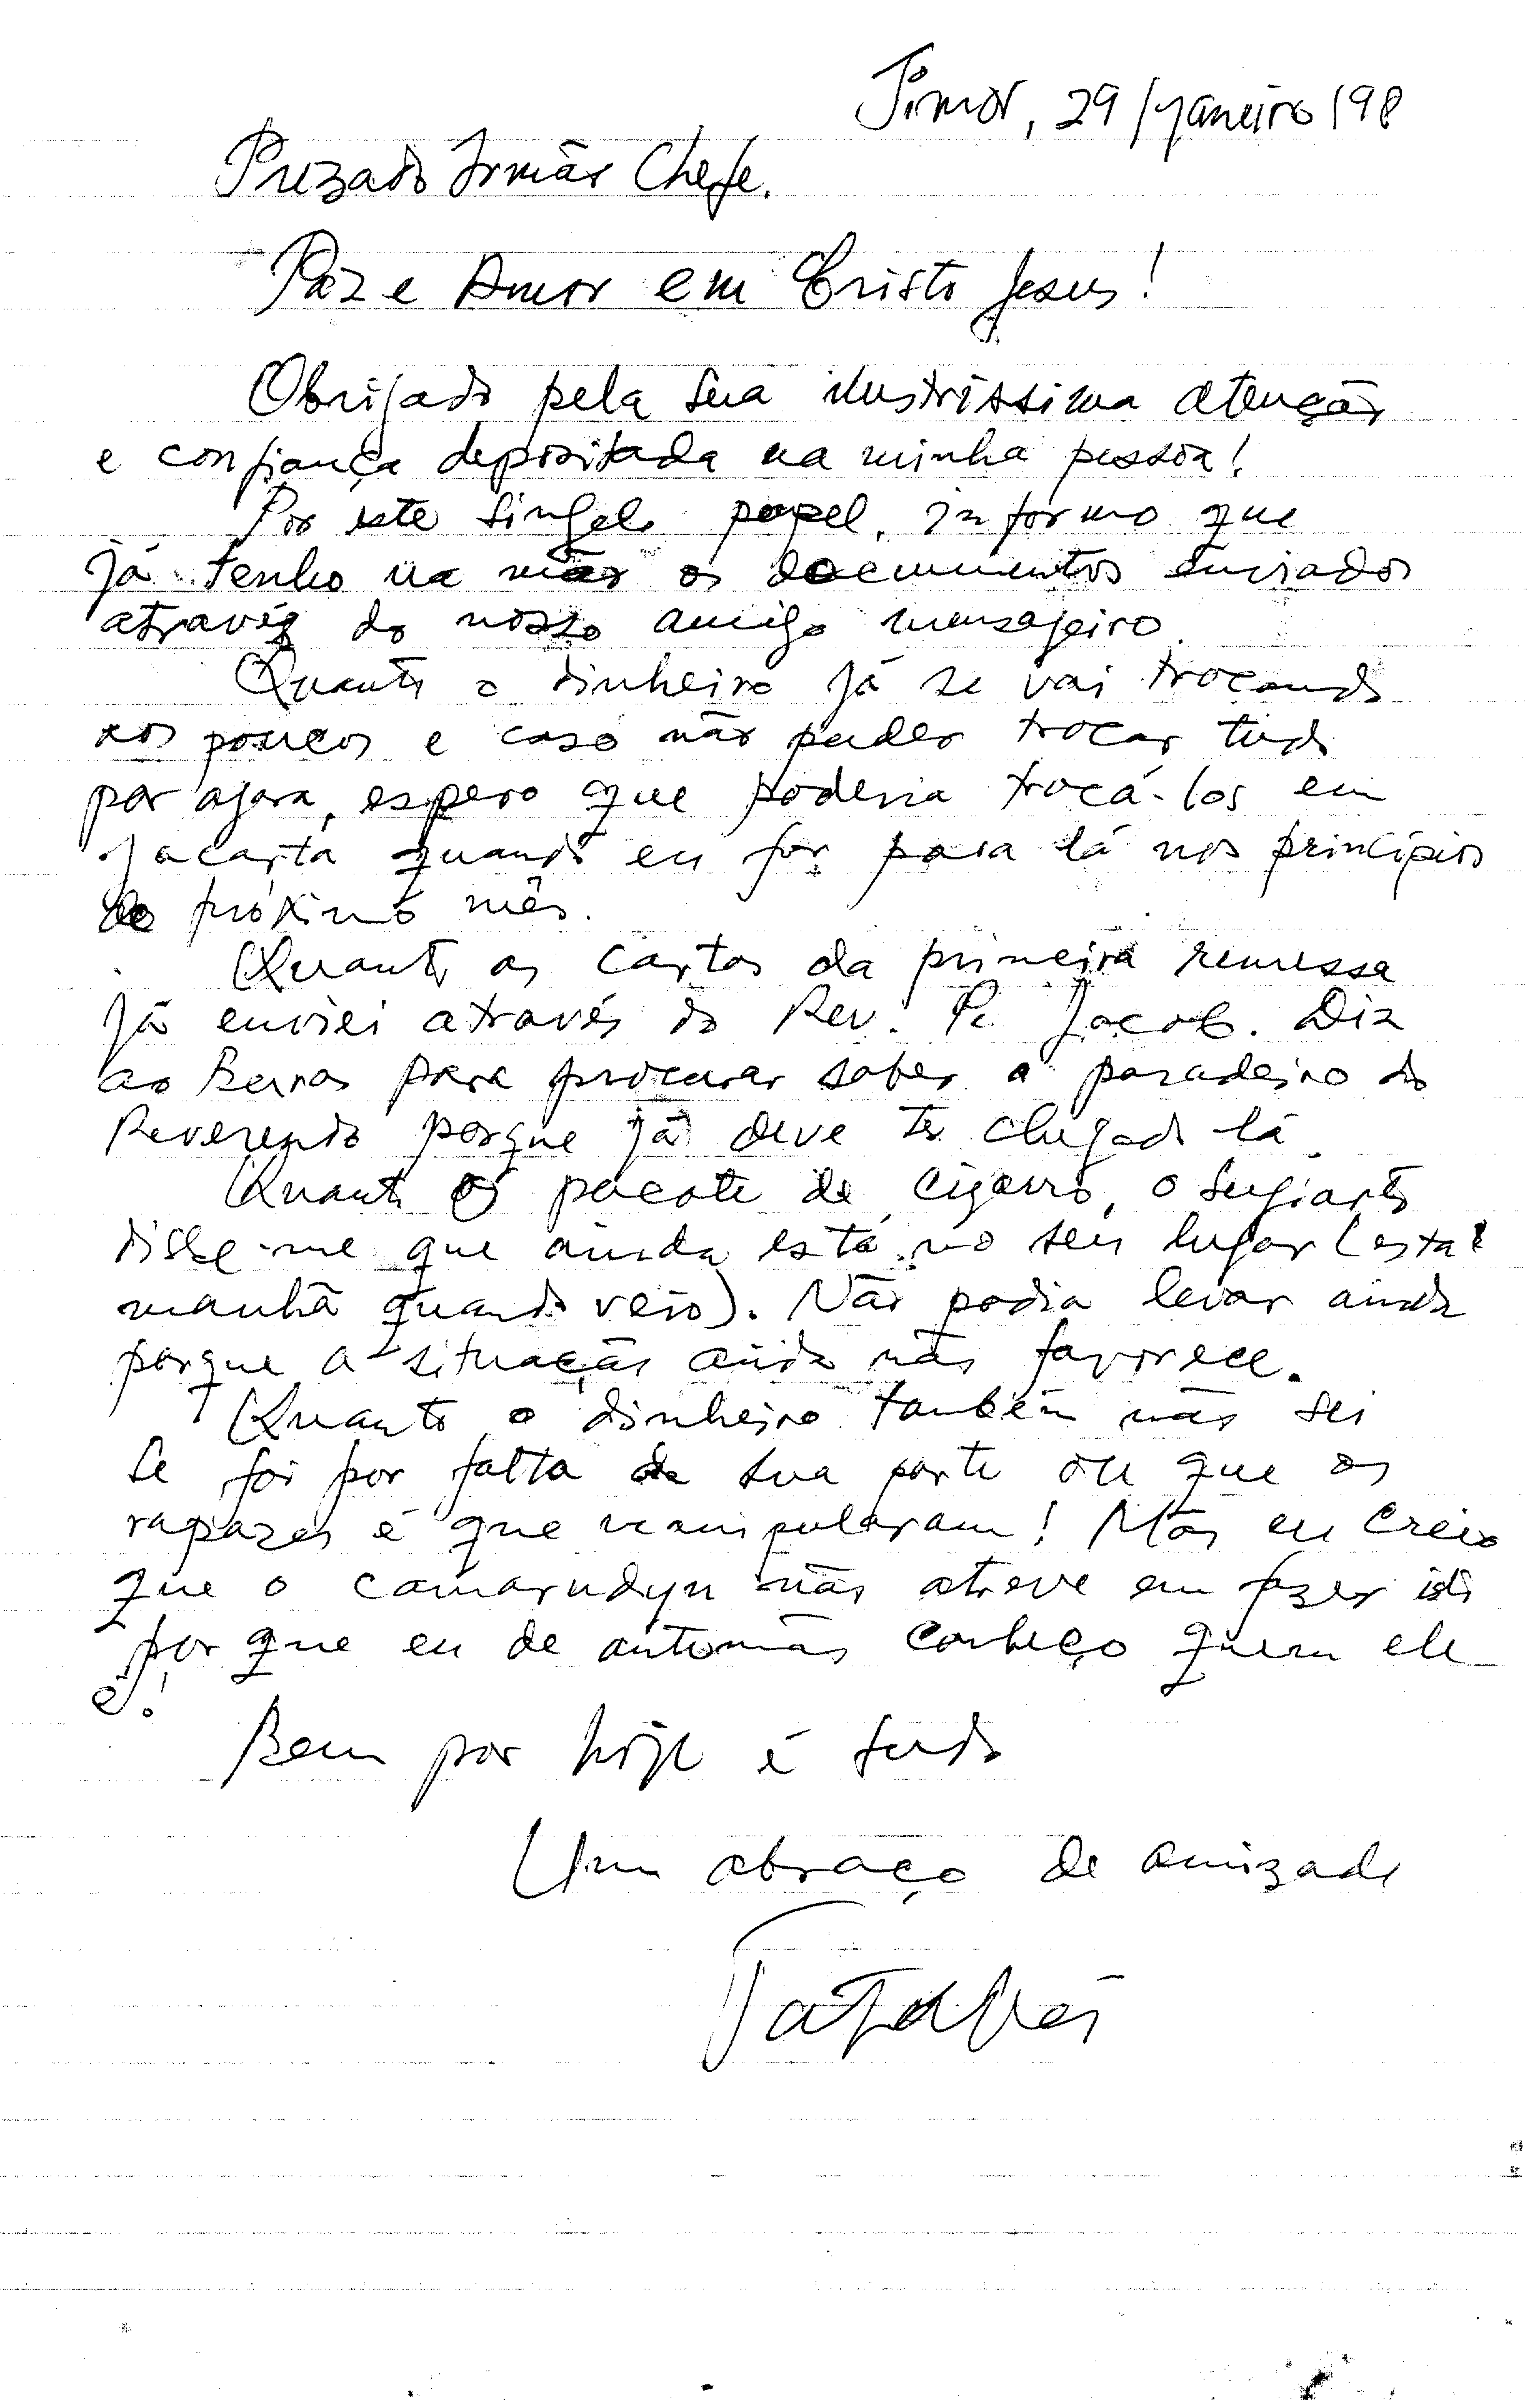 Timor, 29/janeiro/98
Prezado Irmão Chefe.
Paz e Amor em Cristo Jesus!
Obrigado pela sua ilustríssima atenção
e confiança depositada na minha pessoa!
Por este singelo papel, informo que
já tenho na mão os documentos enviados
através do nosso amigo mensageiro.
Quanto o dinheiro já se vai trocando
aos poucos e caso não puder trocar tudo
por agora, espero que poderia trocá-los em
Jacarta quando eu for para lá nos princípios
do próximo mês.
Quanto as cartas da primeira remessa
já enviei através do Rev. Pe. Jacob. Diz
ao para procurar saber o paradeiro do
Reverendo porque já deve ter chegado lá.
Quanto o pacote de cigarro, o Sugiarto
disse-me que ainda está no seu lugar (esta
manhã quando veio). Não podia levar ainda
porque a situação ainda não favorece.
Quanto o dinheiro também não sei
se foi por falta da sua parte ou que os
rapazes é que manipularam! Mas eu creio
que o camarudyn não atreve em fazer isto
por que eu de antemão conheço quem ele
é!
Bem por hoje é tudo
Um abraço de amizade